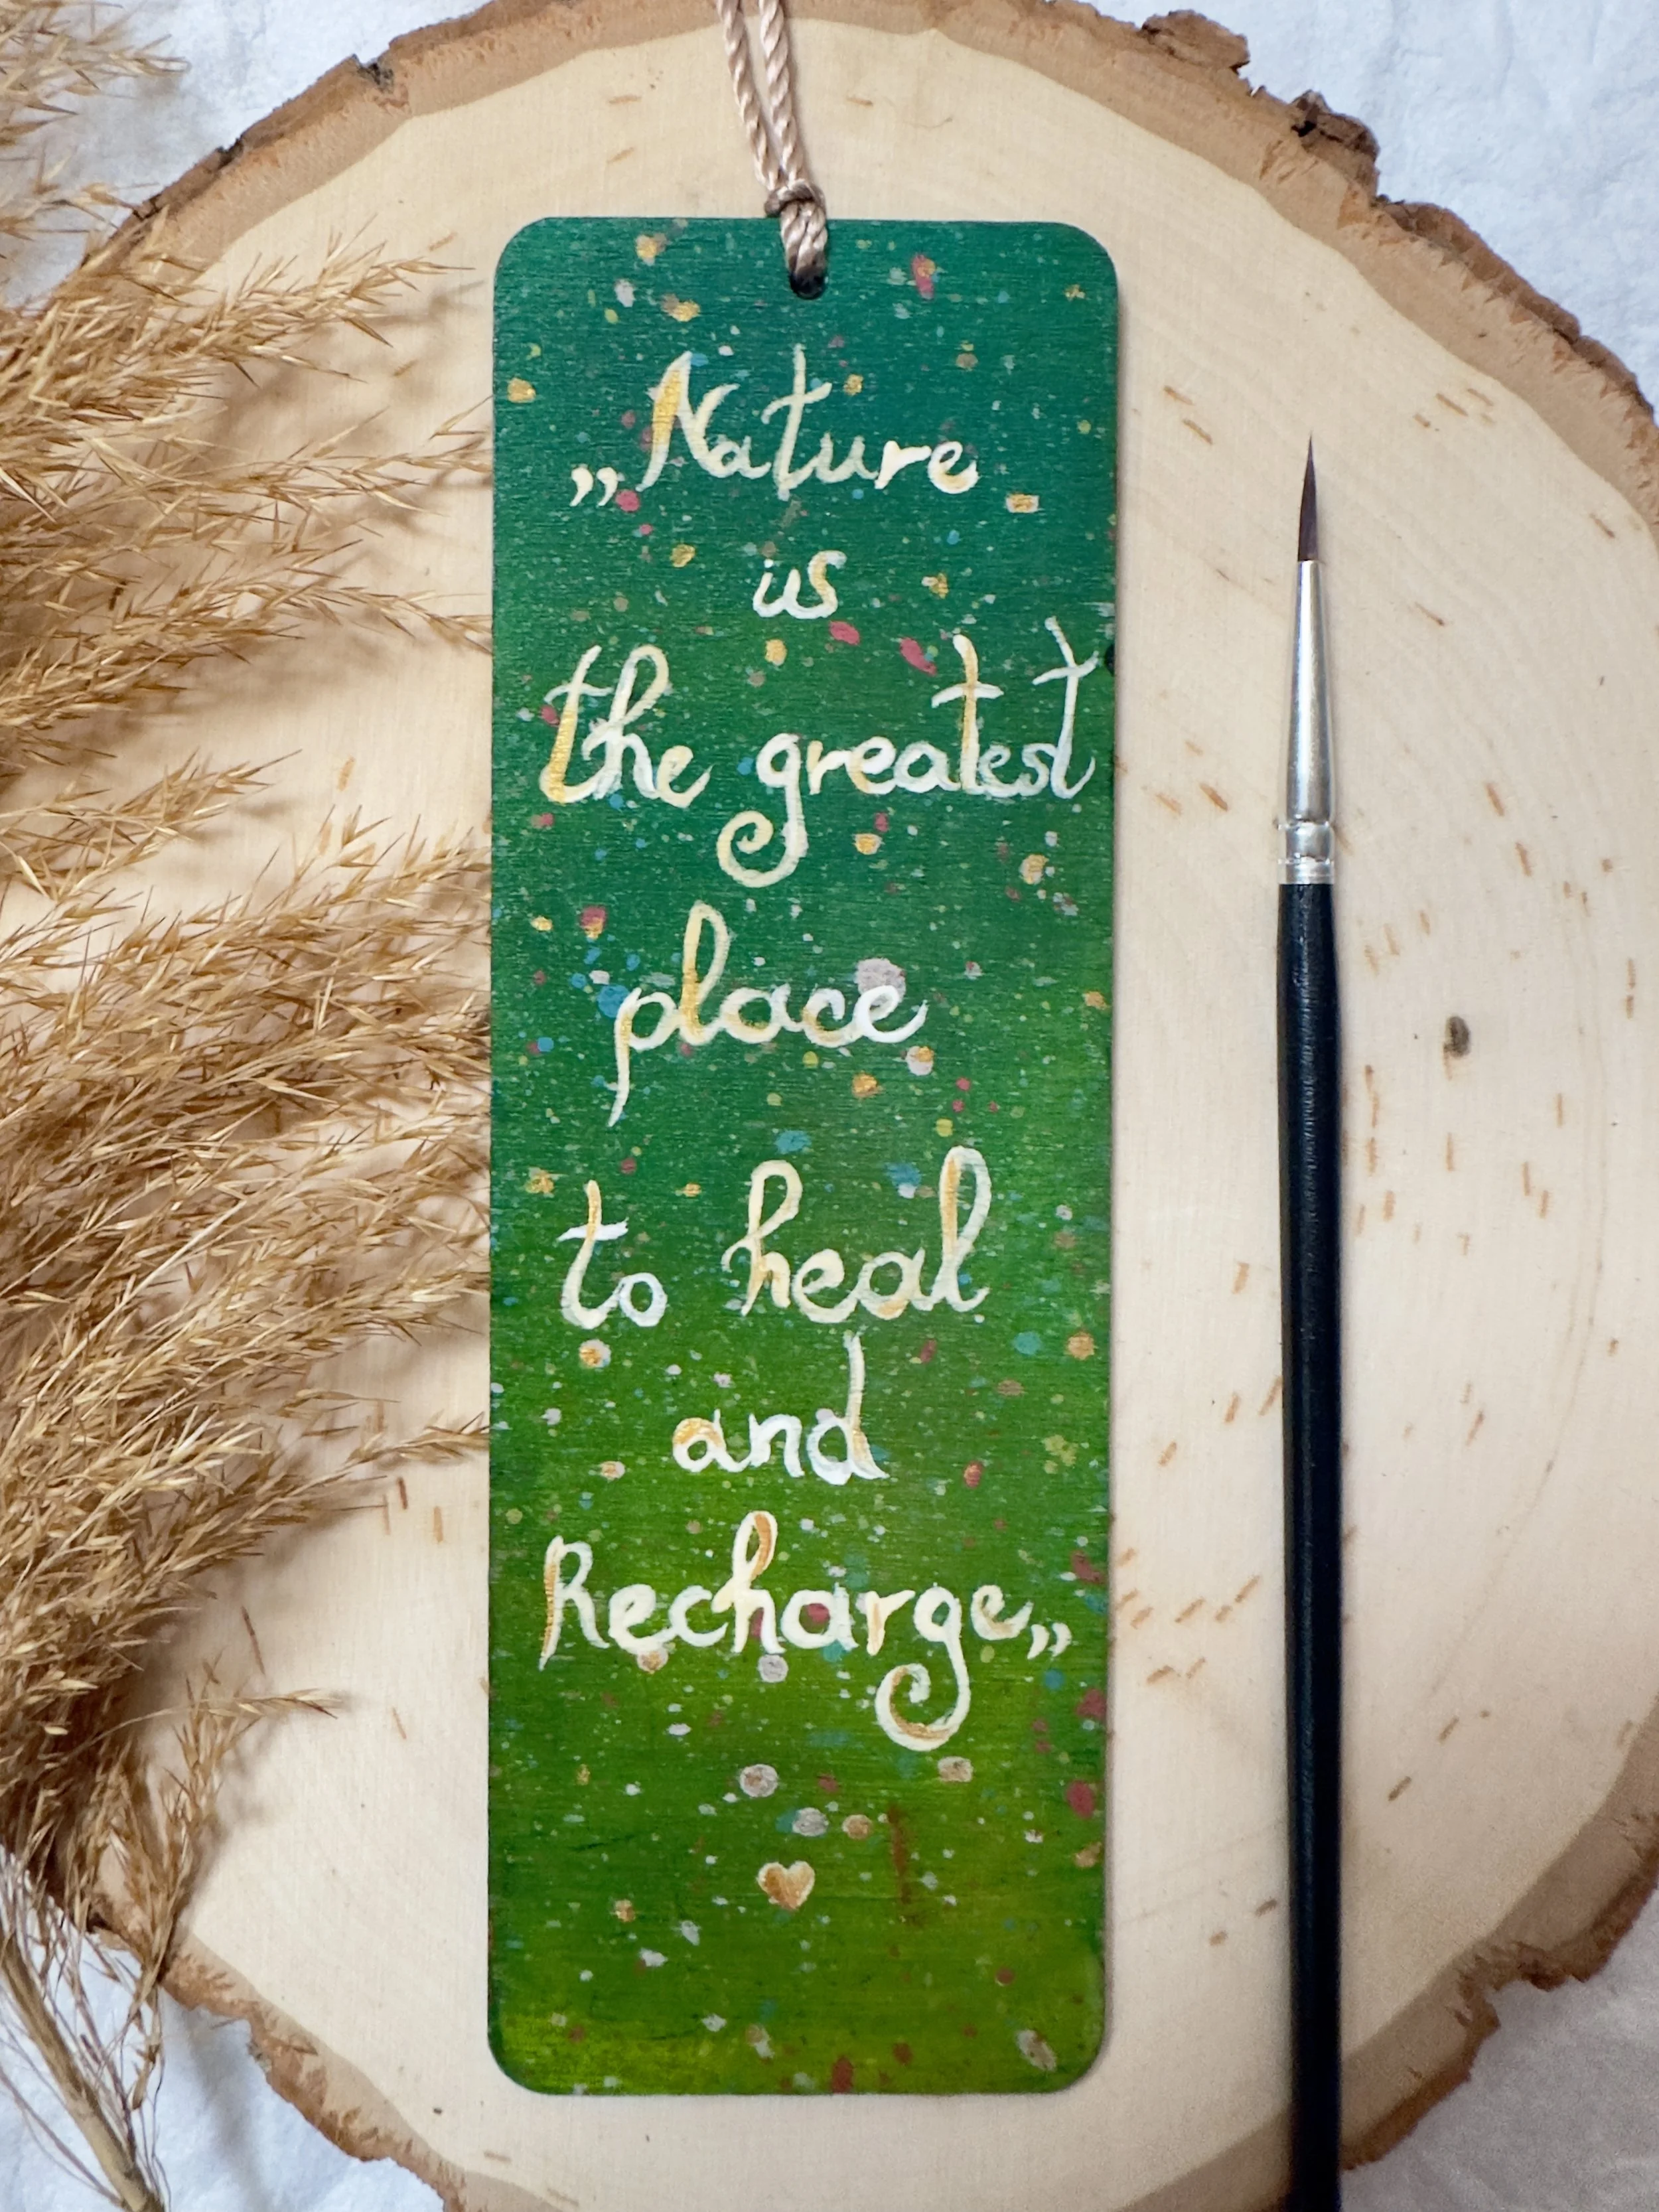 „Nature
is
the greatest
place
to heal
and
Recharge„